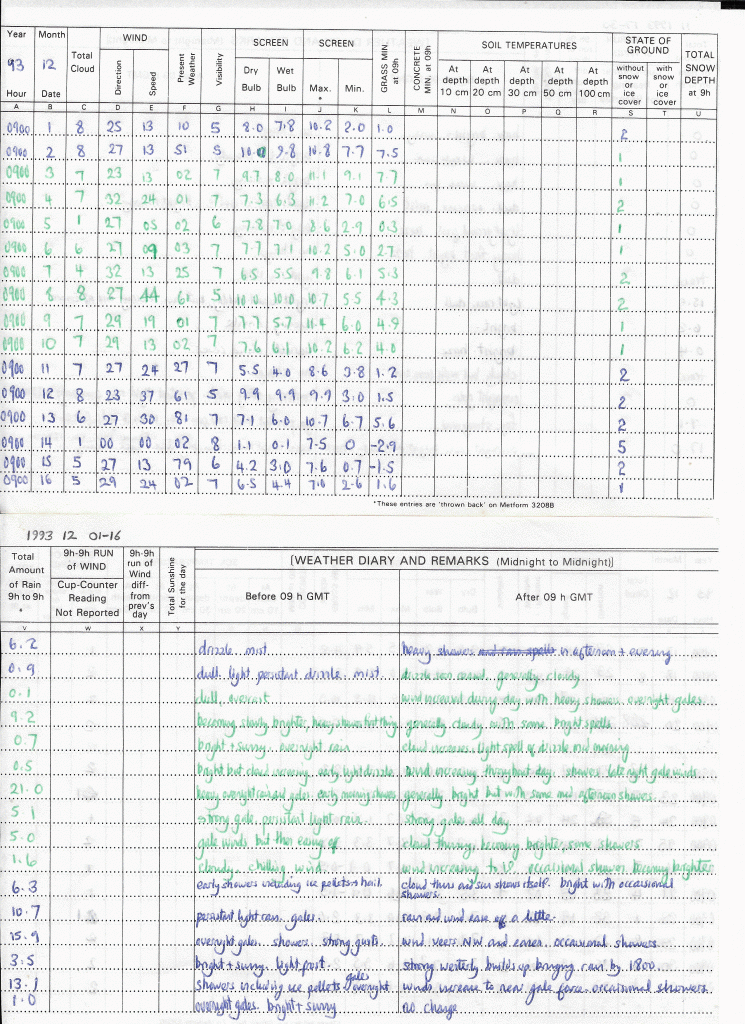 Year Month Total Cloud WIND Present Weather Visibility SCREEN SCREEN GRASS MIN. at 09h CONCRETE MIN. at 09h SOIL TEMPERATURES STATE OF GROUND TOTAL SNOW DEPTH at 9h
93 12 Direction Speed Dry Bulb Wet Bulb Max. * Min. At depth 10 cm At depth 20 cm At depth 30 cm At depth 50 cm At depth 100 cm without snow or ice cover with snow or ice cover
Hour Date
A B C D E F G H I J K L M N O P Q R S T U
0900 1 8 25 13 10 5 8.0 7.8 10.2 2.0 1.0 2
0900 2 8 27 13 51 5 10.0 9.8 10.8 7.7 7.5 1
0900 3 7 23 13 02 7 9.7 8.0 11.1 9.1 7.7 1
0900 4 7 32 24 01 7 7.3 6.3 11.2 7.0 6.5 2
0900 5 1 27 05 02 6 7.8 7.0 8.6 2.9 0.3 1
0900 6 6 27 09 03 7 7.7 7.1 10.2 5.0 2.7 1
0900 7 4 32 13 25 7 6.5 5.5 9.8 6.1 5.3 2
0900 8 8 27 44 61 5 10.0 10.0 10.7 5.5 4.3 2
0900 9 7 29 19 01 7 7.7 5.7 11.4 6.0 4.9 1
0900 10 7 29 13 02 7 7.6 6.1 10.2 6.2 4.0 1
0900 11 7 27 24 27 7 5.5 4.0 8.6 3.8 1.2 2
0900 12 8 23 37 61 5 9.9 9.9 9.9 3.0 1.5 2
0900 13 6 27 30 81 7 7.1 6.0 10.7 6.7 5.6 2
0900 14 1 00 00 02 8 1.1 0.1 7.5 0 -2.9 5
0900 15 5 27 13 79 6 4.2 3.0 7.6 0.7 -1.5 2
0900 16 5 29 24 02 7 6.5 4.4 7.0 2.6 1.6 1
*These entries are 'thrown back' on Metform 3208B
1993 12 01-16
Total Amount of Rain 9h to 9h * 9h-9h RUN of WIND Cup-Counter Reading Not Reported 9h-9h run of Wind diff- from prev's day Total Sunshine for the day [WEATHER DIARY AND REMARKS (Midnight to Midnight)]
Before 09 h GMT After 09 h GMT
V W X Y
6.2 drizzle. mist heavy showers and rain spells in afternoon + evening
0.9 dull. light persistent drizzle. mist drizzle soon ceased. generally cloudy
0.1 dull, overcast wind increased during day with heavy showers. overnight gales
9.2 becoming slowly brighter, heavy showers first thing generally cloudy with some bright spells
0.7 bright + sunny. overnight rain cloud increases. light spell of drizzle mid morning
0.5 bright but cloud increasing. early light drizzle wind increasing throughout day. showers late night gale winds.
21.0 heavy overnight rain and gales. early morning showers generally bright but with some mid afternoon showers.
5.1 strong gale. persistent light rain. strong gales all day
5.0 gale winds but then easing off cloud thinning, becoming brighter, some showers
1.6 cloudy, chilling wind. wind increasing to occasional shower. becoming brighter
6.3 early showers including ice pellets + hail. cloud thins and sun shows itself. bright with occasional
showers.
10.7 persistent light rain. gales. rain and wind ease off a little.
15.9 overnight gales. showers. strong gusts wind veers NW and eases. occasional showers
3.5 bright + sunny. light frost. strong westerly builds up bringing rain by 1800
13.1 showers including ice pellets gales overnight winds increase to near gale force. occasional showers
1.0 overnight gales. bright + sunny no change